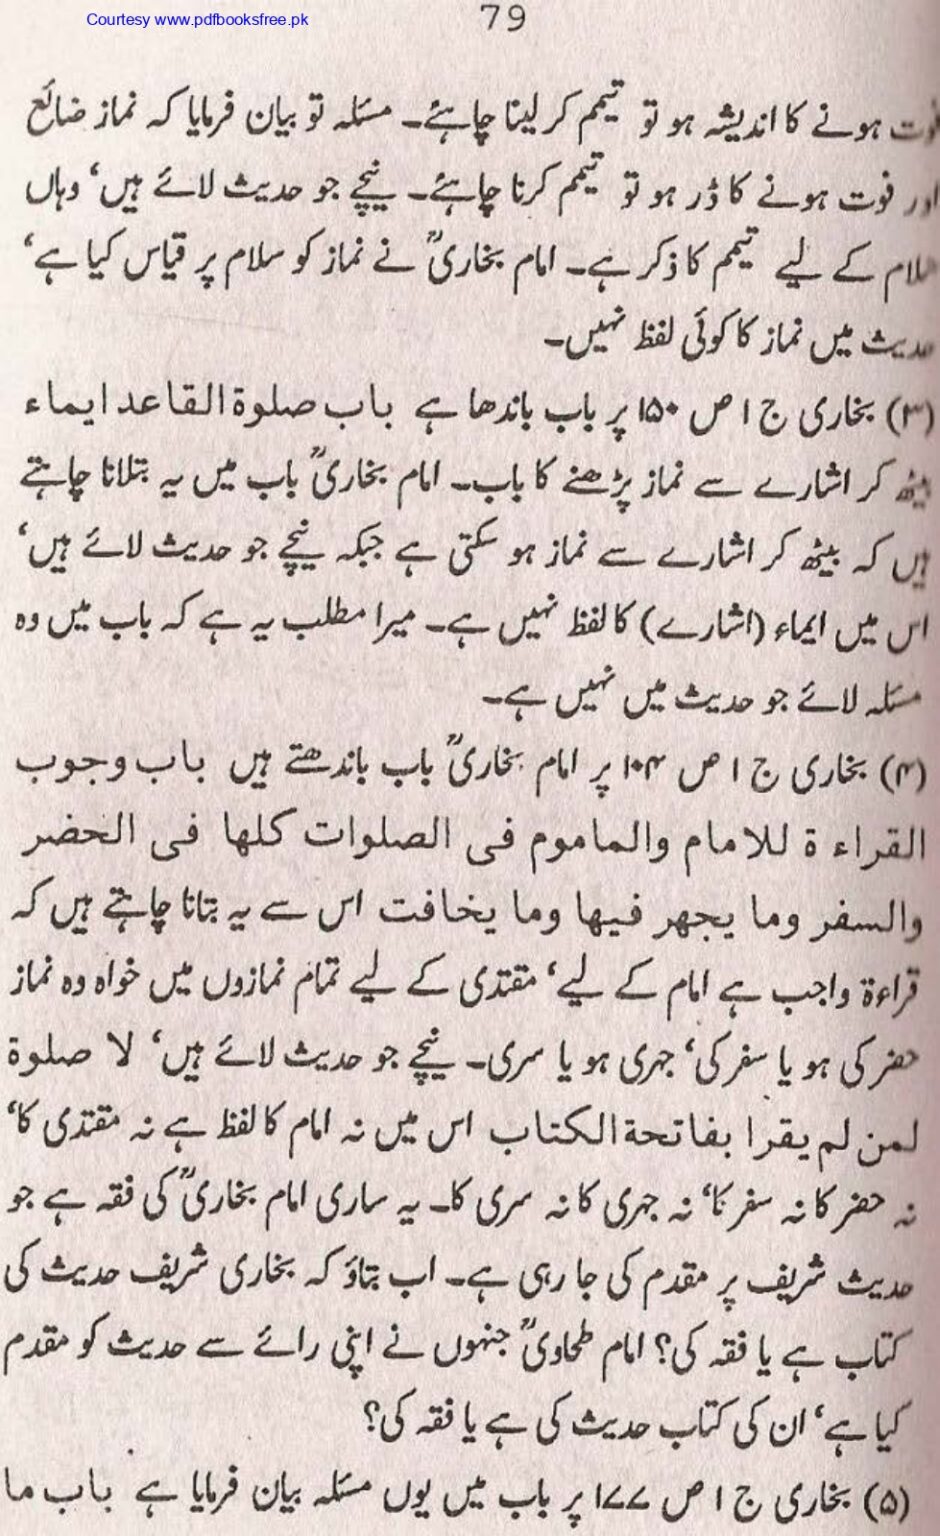 Courtesy www.pdfbooksfree.pk
79
فوت ہونے کا اندیشہ ہو تو تیمم کر لینا چاہئے۔ مسئلہ تو بیان فرمایا کہ نماز ضائع
اور فوت ہونے کا ڈر ہو تو تیمم کرنا چاہئے۔ نیچے جو حدیث لائے ہیں‘ وہاں
سلام کے لیے تیمم کا ذکر ہے۔ امام بخاریؒ نے نماز کو سلام پر قیاس کیا ہے‘
حدیث میں نماز کا کوئی لفظ نہیں۔
(۳) بخاری ج ۱ ص ۱۵۰ پر باب باندھا ہے باب صلوة القاعد ایماء
بیٹھ کر اشارے سے نماز پڑھنے کا باب۔ امام بخاریؒ باب میں یہ بتلانا چاہتے
ہیں کہ بیٹھ کر اشارے سے نماز ہو سکتی ہے جبکہ نیچے جو حدیث لائے ہیں‘
اس میں ایماء (اشارے) کا لفظ نہیں ہے۔ میرا مطلب یہ ہے کہ باب میں وہ
مسئلہ لائے جو حدیث میں نہیں ہے۔
(۴) بخاری ج ۱ ص ۱۰۴ پر امام بخاریؒ باب باندھتے ہیں باب وجوب
القراء ة للامام والماموم فی الصلوات کلها فی الحضر
والسفر وما یجهر فیها وما یخافت اس سے یہ بتانا چاہتے ہیں کہ
قراءۃ واجب ہے امام کے لیے‘ مقتدی کے لیے تمام نمازوں میں خواہ وہ نماز
حضر کی ہو یا سفر کی‘ جہری ہو یا سری۔ نیچے جو حدیث لائے ہیں‘ لا صلوة
لمن لم یقرا بفاتحة الکتاب اس میں نہ امام کا لفظ ہے نہ مقتدی کا‘
نہ حضر کا نہ سفر کا‘ نہ جہری کا نہ سری کا۔ یہ ساری امام بخاریؒ کی فقہ ہے جو
حدیث شریف پر مقدم کی جا رہی ہے۔ اب بتاؤ کہ بخاری شریف حدیث کی
کتاب ہے یا فقہ کی؟ امام طحاویؒ جنہوں نے اپنی رائے سے حدیث کو مقدم
کیا ہے‘ ان کی کتاب حدیث کی ہے یا فقہ کی؟
(۵) بخاری ج ۱ ص ۱۷۷ پر باب میں یوں مسئلہ بیان فرمایا ہے باب ما